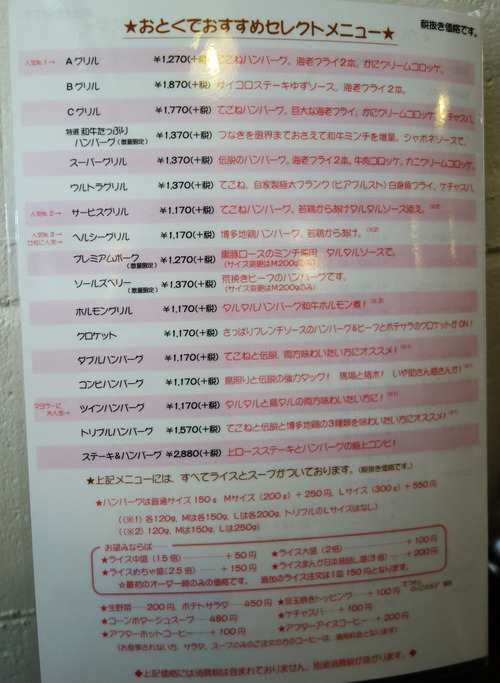 ★おとくでおすすめセレクトメニュー★
税抜き価格です。
人気№1→ Aグリル ¥1,270(+税) てごねハンバーグ。海老フライ2本。かにクリームコロッケ。
Bグリル ¥1,870(+税) サイコロステーキゆずソース。海老フライ2本。
Cグリル ¥1,770(+税) てごねハンバーグ。巨大な海老フライ。かにクリームコロッケ。ケチャスパ。
特選 和牛たっぷりハンバーグ(数量限定) ¥1,370(+税) つなぎを限界までおさえて和牛ミンチを増量。シャポネソースで。
スーパーグリル ¥1,370(+税) 伝説のハンバーグ。海老フライ2本。牛肉コロッケ。カニクリームコロッケ。
ウルトラグリル ¥1,370(+税) てごね。自家製極太フランク(ヒアブルスト)白身魚フライ。ケチャスパ。
人気№2→ サービスグリル ¥1,170(+税) てごねハンバーグ。若鶏からあげタルタルソース添え。(※2)
人気№3→ 女性に人気→ ヘルシーグリル ¥1,170(+税) 博多地鶏ハンバーグ。若鶏からあげ。(※2)
プレミアムポーク(数量限定) ¥1,270(+税) 黒豚ロースのミンチ使用 タルタルソースで。
(サイズ変更はM200gのみ)
ソールズベリー(数量限定) ¥1,370(+税) 荒挽きビーフのハンバーグです。
(サイズ変更はM200gのみ)
ホルモングリル ¥1,170(+税) タルタルハンバーグ和牛ホルモン煮!(※2)
クロケット ¥1,170(+税) さっぱりフレンチソースのハンバーグ&ビーフとポテサラのクロケットがON!
ダブルハンバーグ ¥1,170(+税) てごねと伝説、両方味わいたい方にオススメ!(※1)
コンビハンバーグ ¥1,170(+税) 鳥照りと伝説の強力タッグ! 馬場と猪木! いや助さん格さんか!(※1)
マヨラーに大人気→ ツインハンバーグ ¥1,170(+税) タルタルと鳥タルの両方味わいたい方に!(※1)
トリプルハンバーグ ¥1,570(+税) てごねと伝説と博多地鶏の3種類を味わいたい方にオススメ!(※1)
ステーキ&ハンバーグ ¥2,880(+税) 上ロースステーキとハンバーグの極上コンビ!
★上記メニューには、すべてライスとスープがついております。(税抜き価格です。)
★ハンバーグは普通サイズ150g Mサイズ(200g)+250円、Lサイズ(300g)+550円
((※1)各120g、Mは各150g、Lは各200g、トリプルのLサイズはなし)
((※2)120g、Mは150g、Lは250g)
お望みならば
★ライス中盛(1.5倍)……+50円 ★ライス大盛(2倍)……+100円
★ライスめちゃ盛(2.5倍)……+150円 ★ライスまんが日本昔話し盛(3倍)……+200円
☆最初のオーダー時のみの価格です。 追加のライス注文は1皿180円となります。
★生野菜……200円、ポテトサラダ……450円 ★目玉焼きトッピング……+100円
★コーンポタージュスープ……480円 ★ケチャスパ……+100円
★アフターホットコーヒー……+100円 ★アフターアイスコーヒー……+200円
(お食事されない方、サラダ、スープのみのご注文の方のコーヒーは、通常料金となります)
◆上記価格には消費税は含まれておりません。別途消費税が掛かります。◆